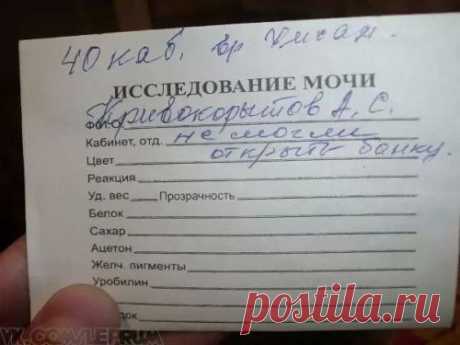 40 каб. вр
ИССЛЕДОВАНИЕ МОЧИ
Ф.И.О. Кривокорытов А. С.
Кабинет, отд. не могли
Цвет открыть банку.
Реакция
Уд. вес Прозрачность
Белок
Сахар
Ацетон
Желч. пигменты
Уробилин
док
VK.COM/LEFRUM
postila.ru